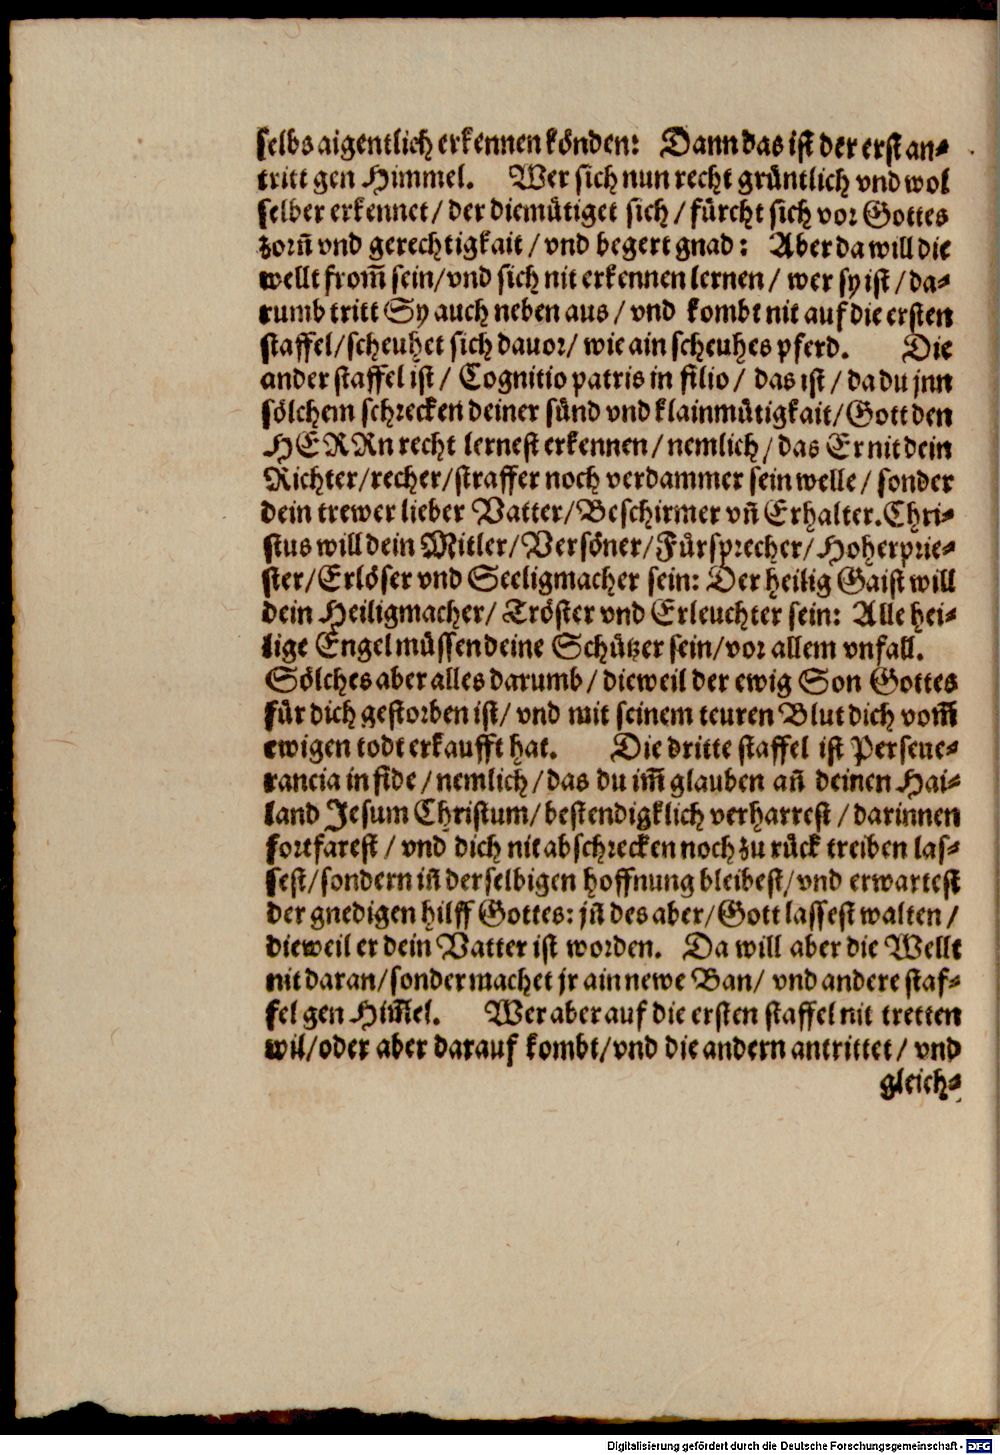 selbs aigentlich erkennen könden: Dann das ist der erst an⸗
tritt gen Himmel. Wer sich nun recht grüntlich vnd wol
selber erkennet / der diemütiget sich / fürcht sich vor Gottes
zorn̄ vnd gerechtigkait / vnd begert gnad: Aber da will die
wellt from̄ sein/ vnd sich nit erkennen lernen / wer sy ist / da⸗
rumb tritt Sy auch neben aus / vnd kombt nit auf die ersten
staffel/ scheuhet sich dauor/ wie ain scheuhes pferd. Die
ander staffel ist / Cognitio patris in filio / das ist / da du jnn
sölchem schrecken deiner sünd vnd klainmütigkait/ Gott den
HERRn recht lernest erkennen / nemlich / das Er nit dein
Richter/ recher/ straffer noch verdammer sein welle / sonder
dein trewer lieber Vatter/ Beschirmer vn̄ Erhalter. Chri⸗
stus will dein Mitler/ Versöner/ Fürsprecher/ Hoherprie⸗
ster/ Erlöser vnd Seeligmacher sein: Der heilig Gaist will
dein Heiligmacher/ Tröster vnd Erleuchter sein: Alle hei⸗
lige Engel müssen deine Schützer sein/ vor allem vnfall.
Sölches aber alles darumb / dieweil der ewig Son Gottes
für dich gestorben ist/ vnd mit seinem teuren Blut dich vom̄
ewigen todt erkaufft hat. Die dritte staffel ist Perseue⸗
rancia in fide / nemlich / das du im̄ glauben an̄ deinen Hai⸗
land Jesum Christum/ bestendigklich verharrest / darinnen
fortfarest / vnd dich nit abschrecken noch zu rück treiben las⸗
sest/ sondern in̄ derselbigen hoffnung bleibest/ vnd erwartest
der gnedigen hilff Gottes: jn̄ des aber/ Gott lassest walten /
dieweil er dein Vatter ist worden. Da will aber die Wellt
nit daran/ sonder machet jr ain newe Ban/ vnd andere staf⸗
fel gen Him̄el. Wer aber auf die ersten staffel nit tretten
wil/ oder aber darauf kombt/ vnd die andern antrittet / vnd
gleich⸗
Digitalisierung gefördert durch die Deutsche Forschungsgemeinschaft - DFG